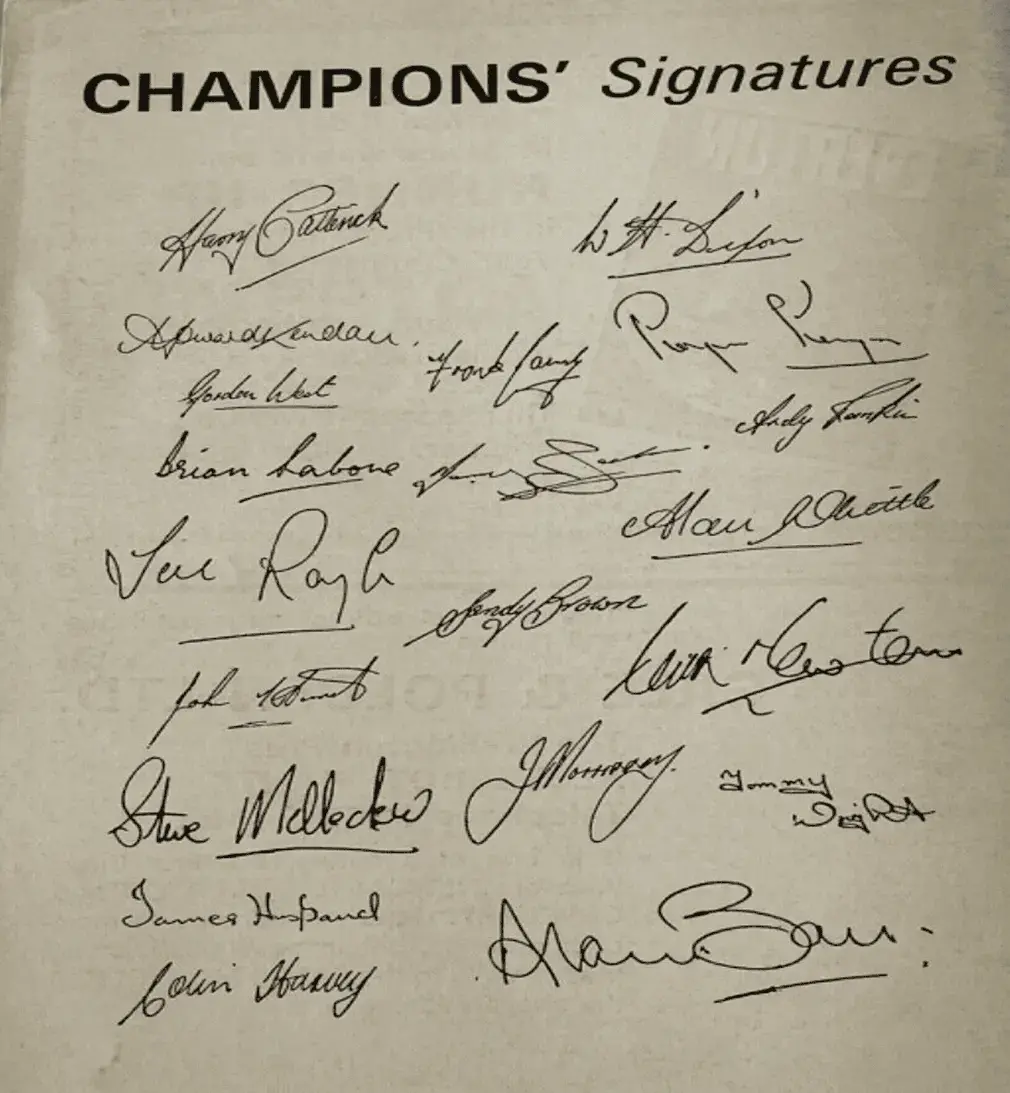 CHAMPIONS' Signatures
Harry Catterick
W H. Dixon
Howard Kendall.
Frank
Roger Kenyon
Gordon West
Andy Rankin
Brian Labone
Alan Whittle
Joe Royle
Sandy Brown
Keith Newton
John Hurst
J Morrissey.
Tommy
Wright
Steve
James Husband
Alan Ball.
Colin Harvey